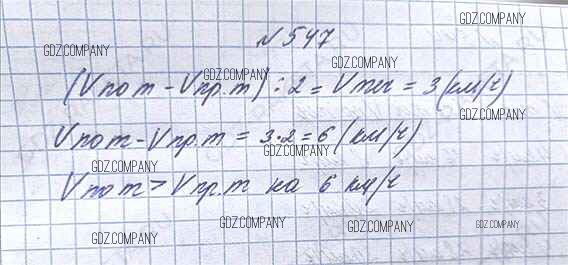 GDZ.COMPANY
N547
GDZ.COMPANY
GDZ.COMPANY
GDZ.COMPANY
(Vпот - Vпр.т) : 2 = Vтеч = 3 (км/ч)
GDZ.COMPANY
GDZ.COMPANY
Vпот - Vпр.т = 3·2 = 6 (км/ч)
GDZ.COMPANY
GDZ.COMPANY
Vпот > Vпр.т на 6 км/ч
GDZ.COMPANY
GDZ.COMPANY
GDZ.COMPANY
GDZ.COMPANY